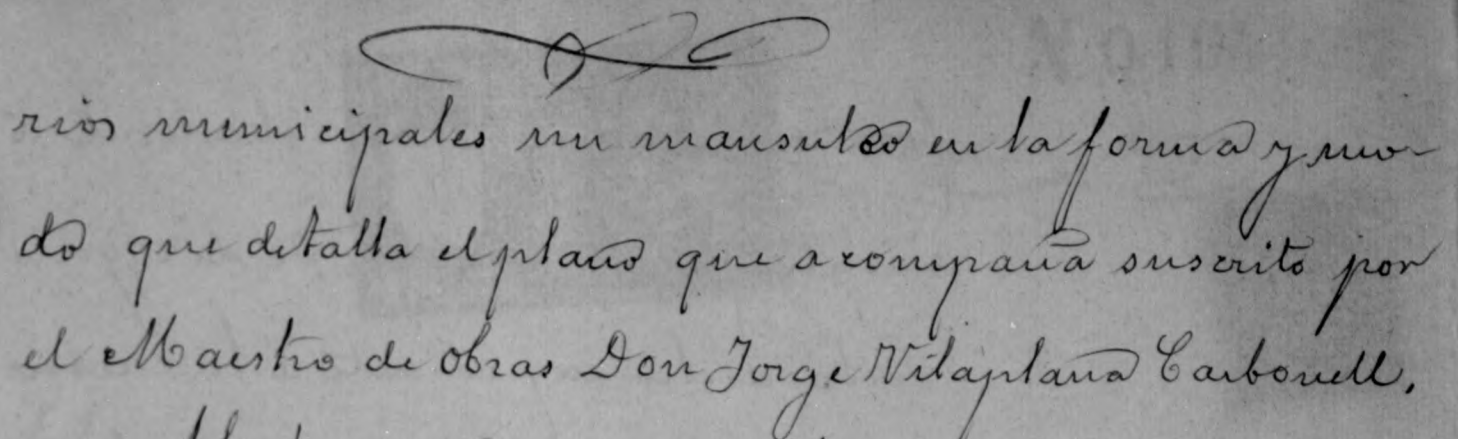 rios municipales un mausuleo en la forma y mo-
do que detalla el plano que acompaña suscrito por
el Maestro de obras Don Jorge Vilaplana Carbonell,